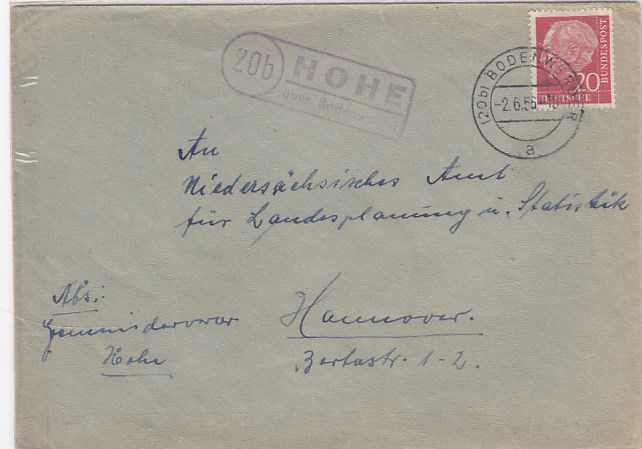 20b HOHE
über Boden
(20b) BODENWERDER
-2.6.56
a
20
DEUTSCHE
BUNDESPOST
An
Niedersächsisches Amt
für Landesplanung u. Statistik
Hannover.
Bertastr. 1-2.
Abs:
Hohe